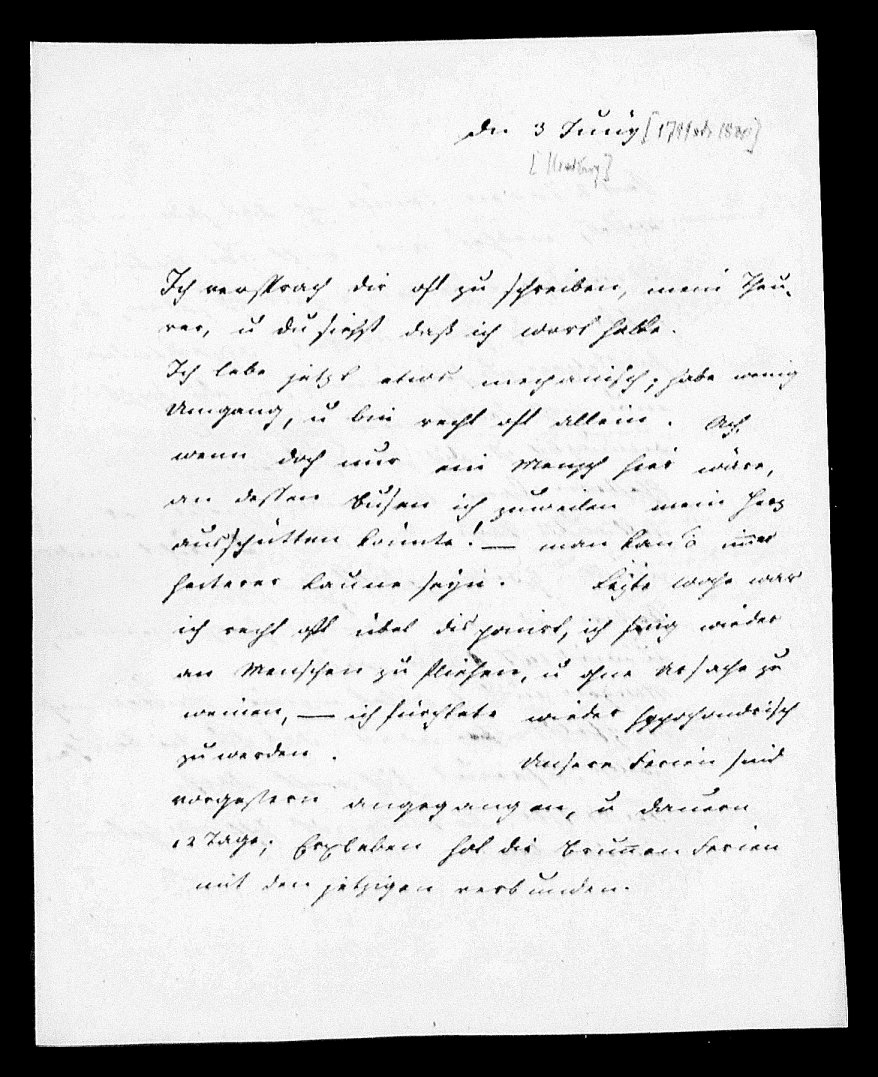 den 3 Juny [1799 od. 1800]
Ich versprach dir oft zu schreiben, mein Theu-
rer, u du siehst daß ich wort halte.
Ich lebe jetzt etwas mechanisch; habe wenig
Umgang, u bin recht oft allein. Ach,
wenn doch nur ein Mensch hier wäre,
an dessen Busen ich zuweilen mein Herz
ausschütten könnte! — man kan's immer
heiterer Laune seyn. Lezte woche war
ich recht oft übel disponirt, ich fing wieder
an Menschen zu fliehen, u ohne Ursache zu
weinen, — ich fürchtete wieder hypochondrisch
zu werden. Unsere Ferien sind
vorgestern angegangen, u dauern
12 Tage; Erxleben hat die Brunnen Ferien
mit den jetzigen verbunden.